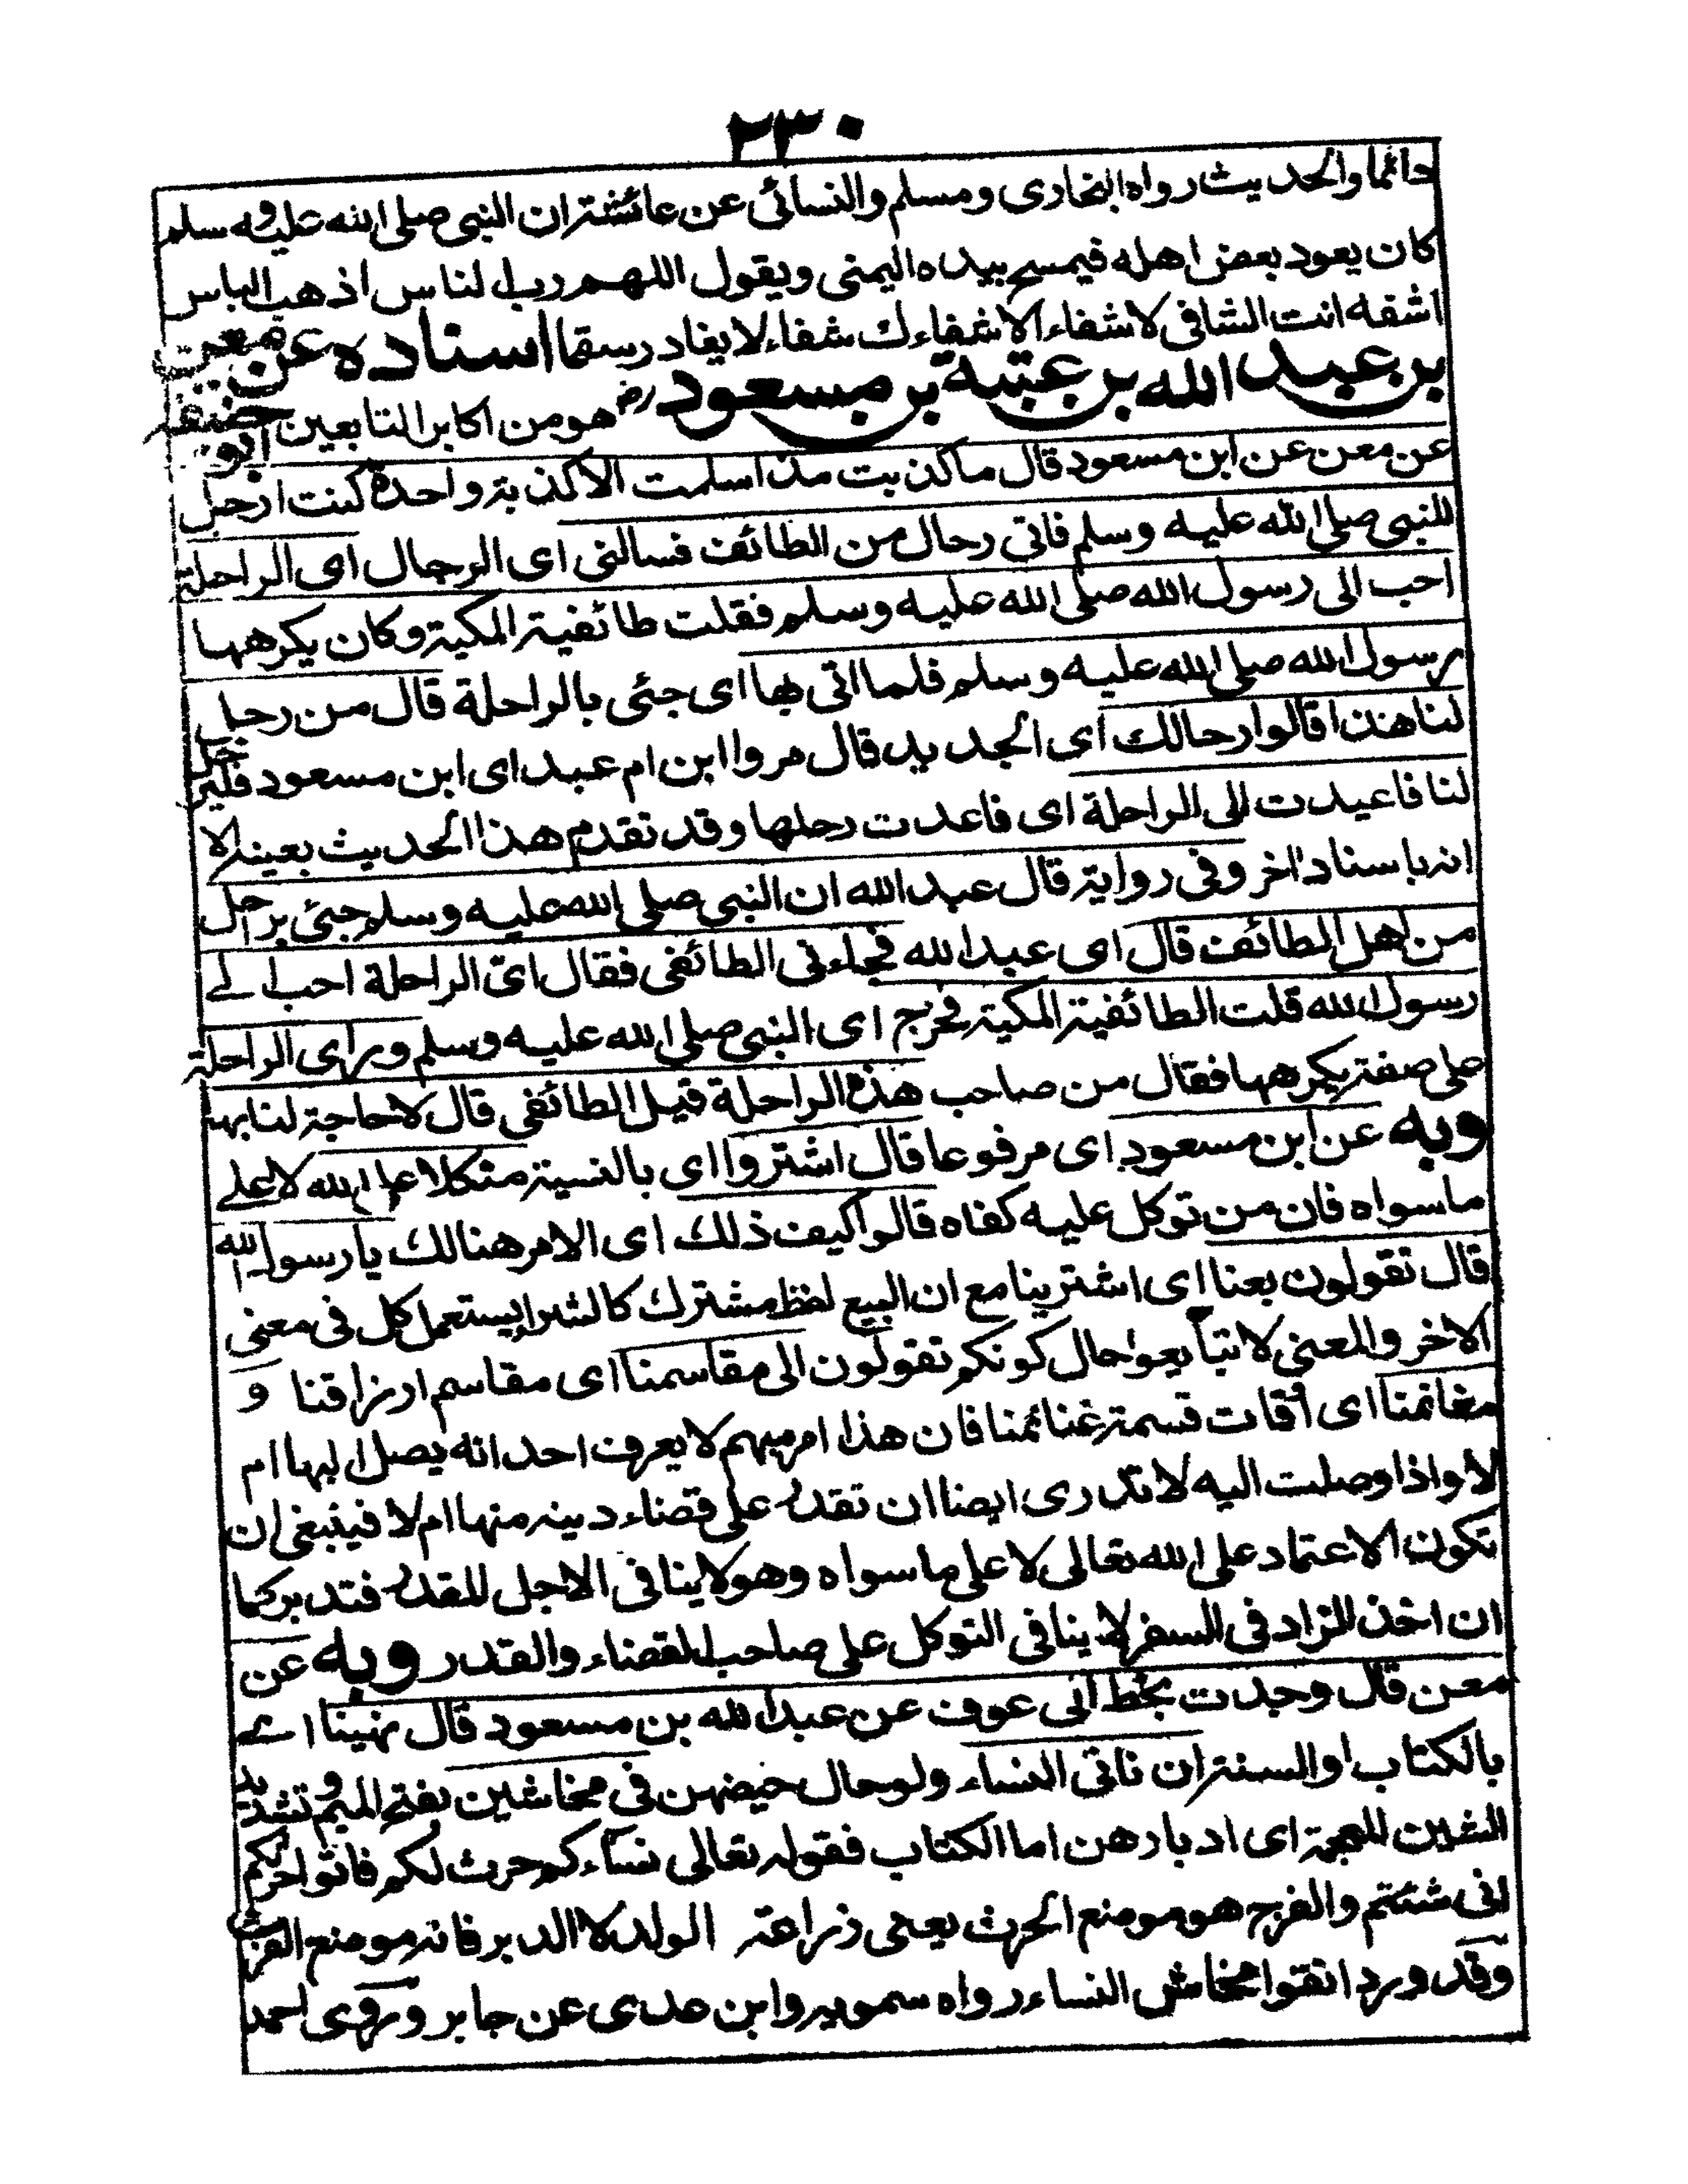 ٢٣٠
دائما والحديث رواه البخارى ومسلم والنسائى عن عائشة ان النبى صلى الله عليه وسلم
كان يعود بعض اهله فيمسح بيده اليمنى ويقول اللهم رب الناس اذهب الباس
اشفه انت الشافى لا شفاء الا شفاءك شفاء لا يغادر سقما اسناده عن معن
بن عبد الله بن عتبة بن مسعود رض هو من اكابر التابعين ابو حنيفة
عن معن عن ابن مسعود قال ما كذبت مذ اسلمت الا كذبة واحدة كنت ارحل
للنبى صلى الله عليه وسلم فاتى رحال من الطائف فسالنى اى الرحال اى الراحلة
احب الى رسول الله صلى الله عليه وسلم فقلت طائفية المكية وكان يكرهها
رسول الله صلى الله عليه وسلم فلما اتى بها اى جئى بالراحلة قال من رحل
لنا هذا قالوا رحالك اى الجديد قال مروا ابن ام عبد اى ابن مسعود فليرحل
لنا فاعيدت الى الراحلة اى فاعدت رحلها وقد تقدم هذا الحديث بعينه الا
انه باسناد اخر وفى رواية قال عبد الله ان النبى صلى الله عليه وسلم جئ برحل
من اهل الطائف قال اى عبد الله فجاءنى الطائفى فقال اى الراحلة احب الے
رسول الله قلت الطائفية المكية فخرج اى النبى صلى الله عليه وسلم وراى الراحلة
على صفة يكرهها فقال من صاحب هذه الراحلة قيل الطائفى قال لا حاجة لنا بها
وبه عن ابن مسعود اى مرفوعا قال اشتروا اى بالنسية متكلا على الله لا علے
ما سواه فان من توكل عليه كفاه قالوا كيف ذلك اى الامر هنالك يا رسول الله
قال تقولون بعنا اى اشترينا مع ان البيع لفظ مشترك كالشراء يستعمل كل فى معنى
الاخر والمعنى لا تبايعوا حال كونكم تقولون الى مقاسمنا اى مقاسم ارزاقنا و
مغانمنا اى اوقات قسمة غنائمنا فان هذا امر مبهم لا يعرف احد انه يصل اليها ام
لا واذا وصلت اليه لا تدرى ايضا ان تقدر على قضاء دينه منها ام لا فينبغى ان
تكون الاعتماد على الله تعالى لا على ما سواه وهو لا ينافى الاجل المقدر فتدبر كما
ان اخذ الزاد فى السفر لا ينافى التوكل على صاحب القضاء والقدر وبه عن
معن قال وجدت بخط ابى عوف عن عبد الله بن مسعود قال نهينا اے
بالكتاب او السنة ان ناتى النساء ولو حال حيضهن فى محاشين بفتح الميم وتشديد
الشين المعجمة اى ادبارهن اما الكتاب فقوله تعالى نساءكم حرث لكم فاتوا حرثكم
انى شئتم والفرج هو موضع الحرث يعنى زراعة الولد لا الدبر فانه موضع الفرث
وقد ورد اتقوا محاش النساء رواه سمويه وابن عدى عن جابر وروى احمد